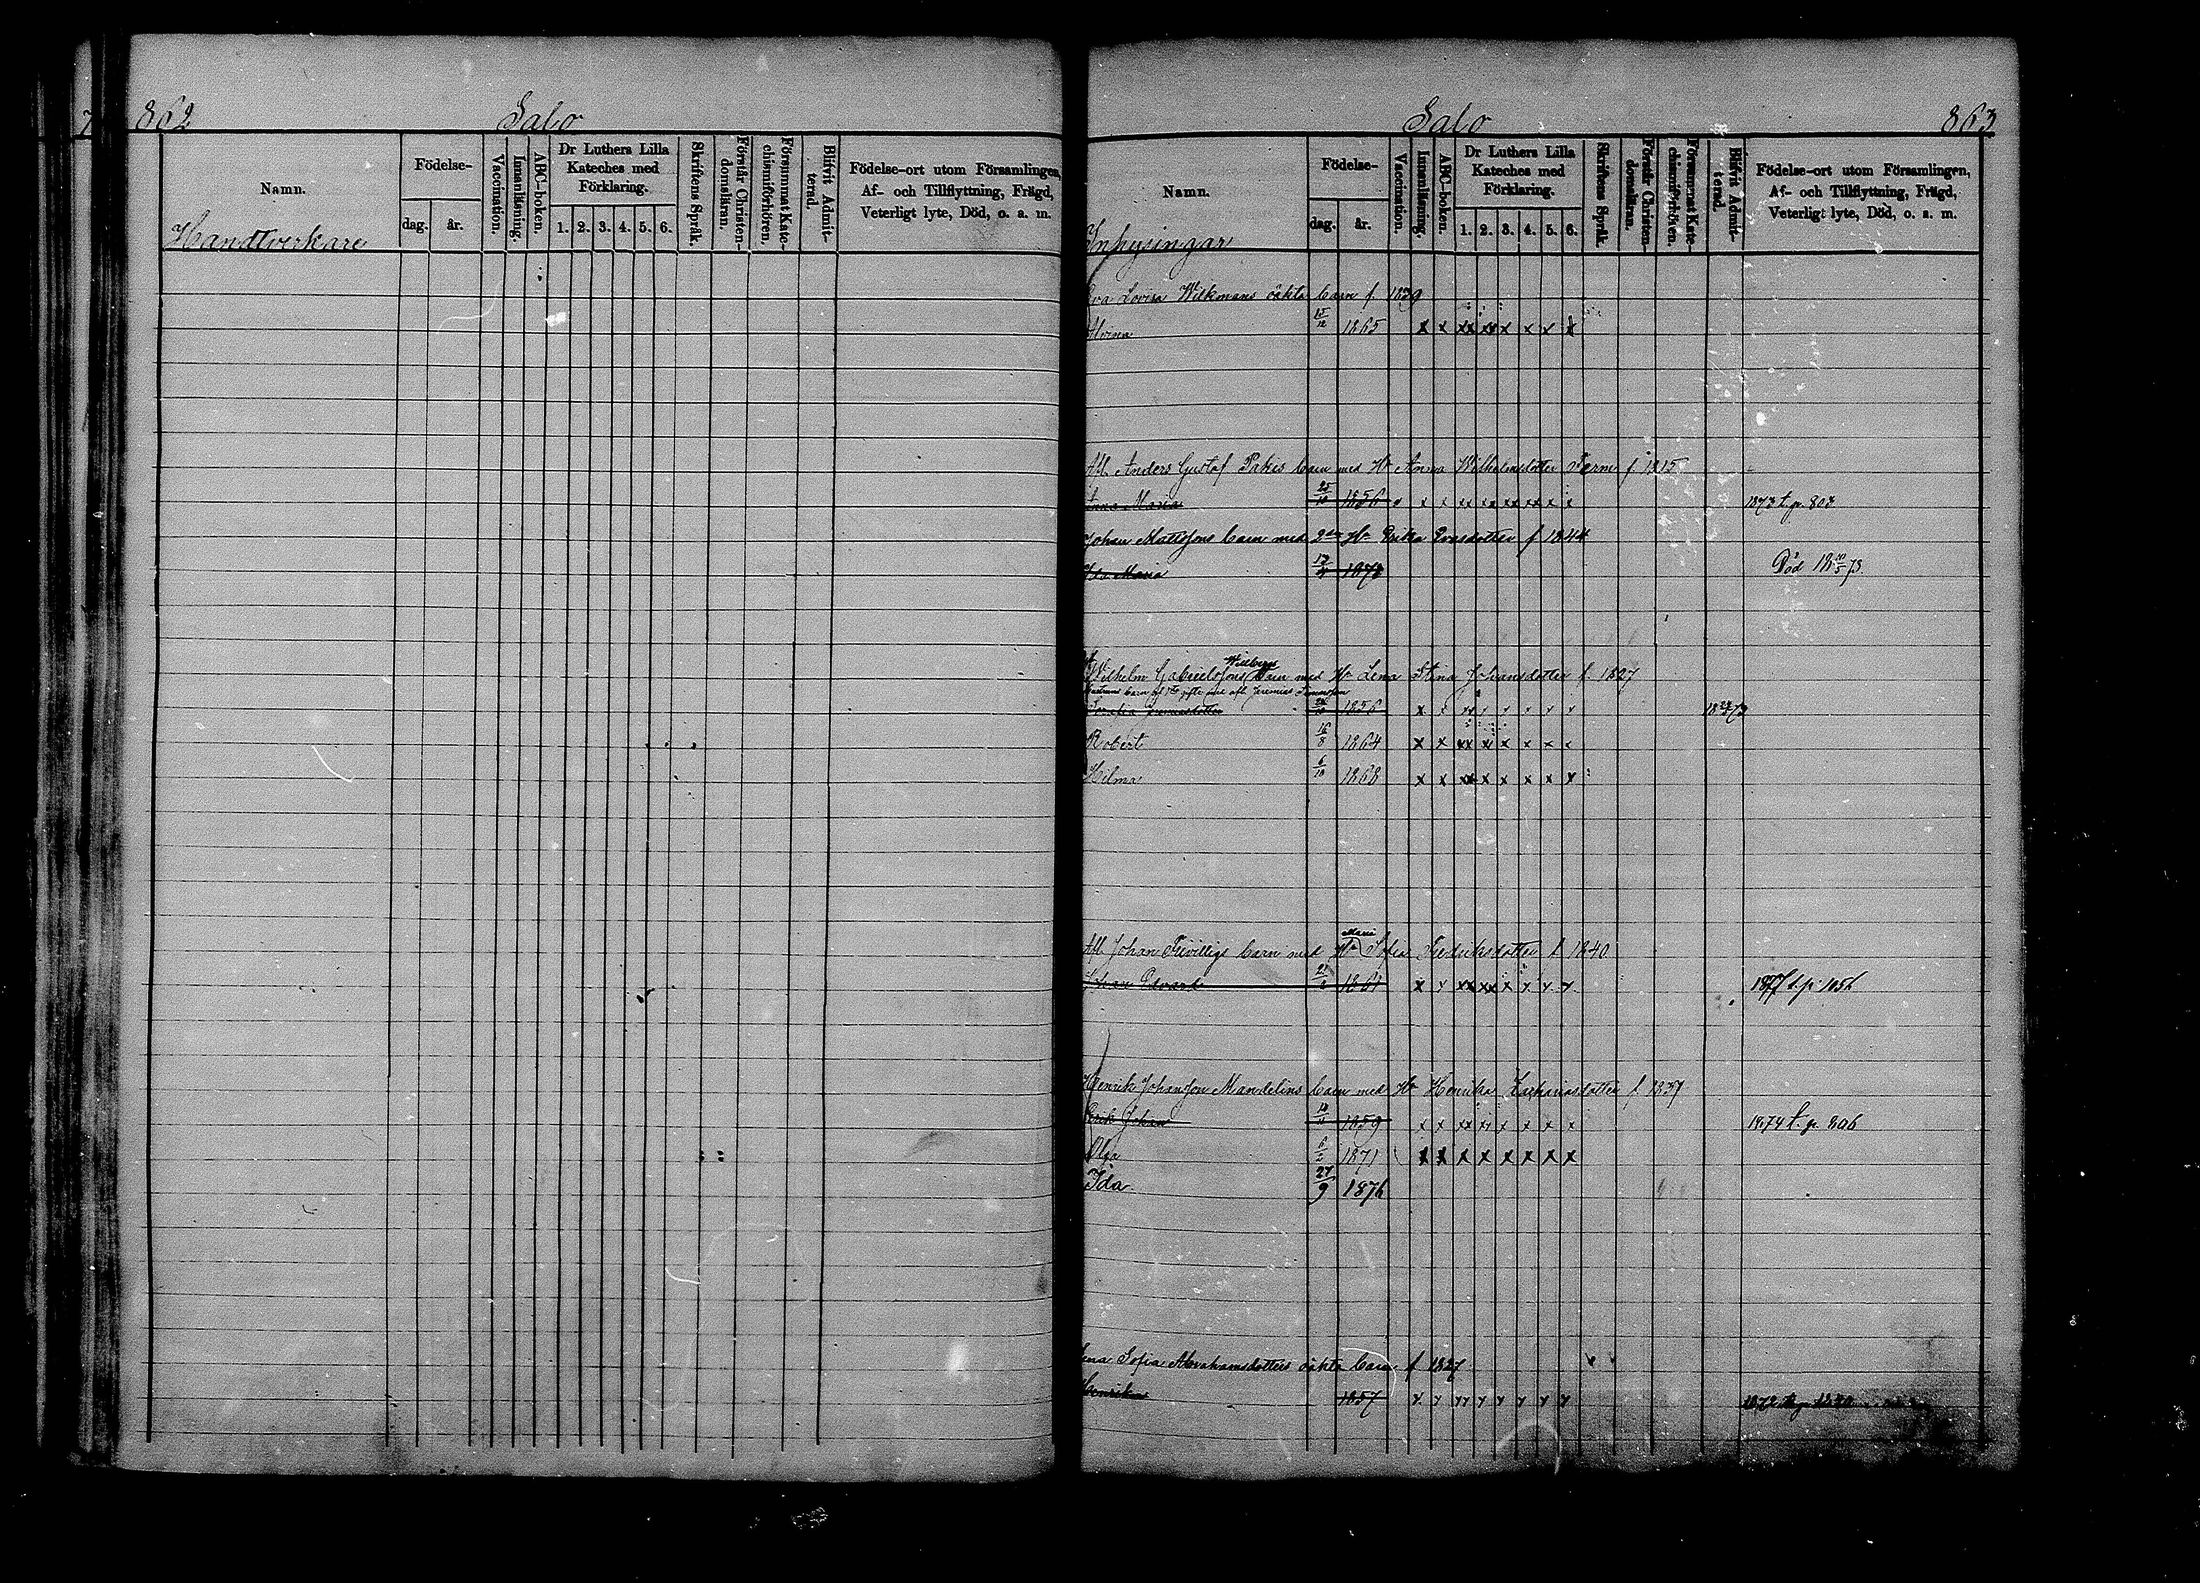 862 Salo
Namn. Födelse- dag. år. Vaccination. Innanläsning. ABC-boken. Dr Luthers Lilla Kateches med Förklaring. 1. 2. 3. 4. 5. 6. Skriftens Språk. Förstår Christendomsläran. Försummat Katechismiförhören. Blifvit Admitterad. Födelse-ort utom Församlingen, Af- och Tillflyttning, Frägd, Veterligt lyte, Död, o. a. m.
Handtverkare
Salo 863
Namn. Födelse- dag. år. Vaccination. Innanläsning. ABC-boken. Dr Luthers Lilla Kateches med Förklaring. 1. 2. 3. 4. 5. 6. Skriftens Språk. Förstår Christendomsläran. Försummat Katechismiförhören. Blifvit Admitterad. Födelse-ort utom Församlingen, Af- och Tillflyttning, Frägd, Veterligt lyte, Död, o. a. m.
Inhysingar
Eva Lovisa Wilkmans oäkta barn f. 1839
15/12 1865 x x xx xx x x x x
Afl. Anders Gustaf barn med Hu Anna Wilhelmsdotter Ferm f. 1815
Anna Maria 25/10 1856 x x xx xx xx xx x x 1873 t. p. 803
Johan Matssons barn med 2dra Hu Erika f 1844
Ida Maria 1873 Död 18 /5 73
Wilbergs
Wilhelm Gabrielssons barn med Hu Lena Stina Johansdotter f. 1827
Hustruns barn gift med afl. Jeremias
1856 x x xx x x x x x
Robert 16/8 1864 x x xx xx x x x x
Hilma 6/10 1868 x x xx x x x x x
Maria
Afl Johan Frivilligs barn med Hu Sofia Fredriksdotter f 1840
Johan Edvard 1861 x x xx xx x x x x 1877 t. p. 1056
Henrik Johansson Mandelins barn med Hu Henrika Zachariasdotter f 1837
Erik Johan 1859 x x xx xx x x x x 1874 t. p. 806
Olga 6/2 1871 x x x x x x x x
Ida 27/9 1876
Lena Sofia Abrahamsdotters oäkta barn f 1827
Henrika 1857 x x xx x x x x x